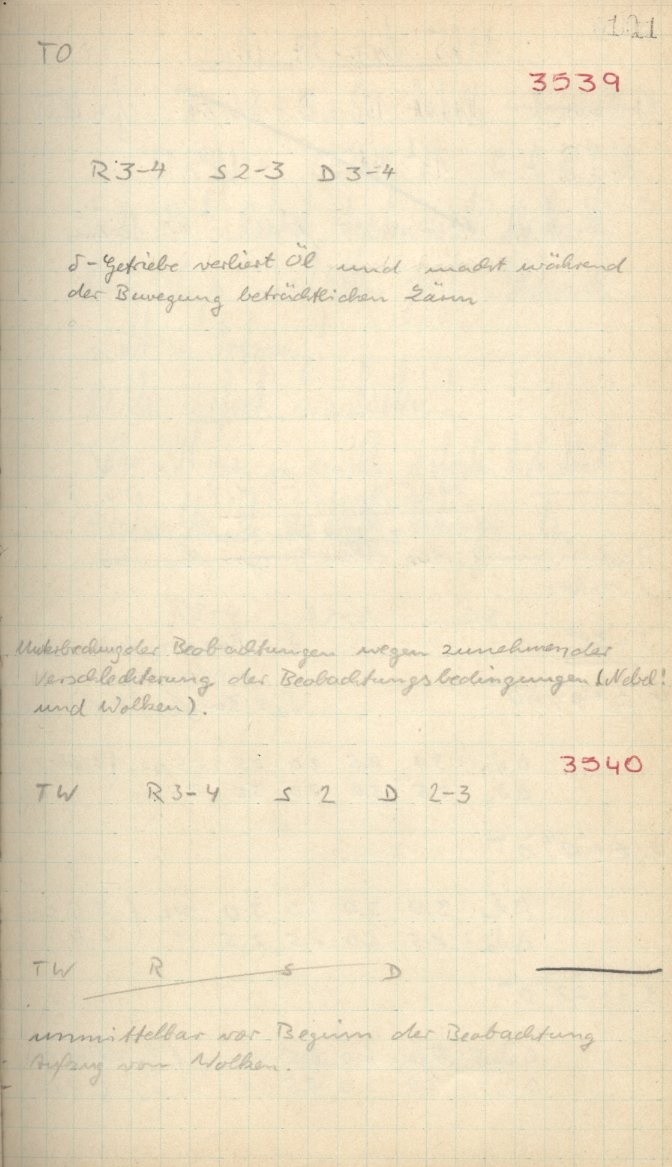 121
TO
3539
R 3-4 S 2-3 D 3-4
δ-Getriebe verliert Öl und macht während
der Bewegung beträchtlichen Lärm
Unterbrechung der Beobachtungen wegen zunehmender
Verschlechterung der Beobachtungsbedingungen (Nebel!
und Wolken).
3540
TW R 3-4 S 2 D 2-3
TW R S D
unmittelbar vor Beginn der Beobachtung
Aufzug von Wolken.